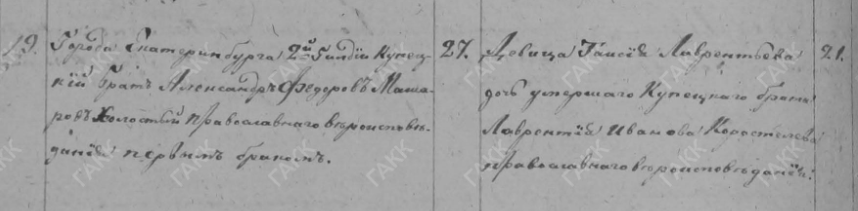 19. Города Екатеринбурга 2й Гилдiи Купец-
кiй братъ Александръ Федоровъ Мака-
ровъ Холостый православнаго вѣроисповѣ-
данiя первымъ бракомъ.
27.
Девица Таисiя Лаврентьева
дочь умершаго Купецкаго брата
Лаврентiя Иванова Коростелева
православнаго вѣроисповѣданiя.
21.
ГАКК